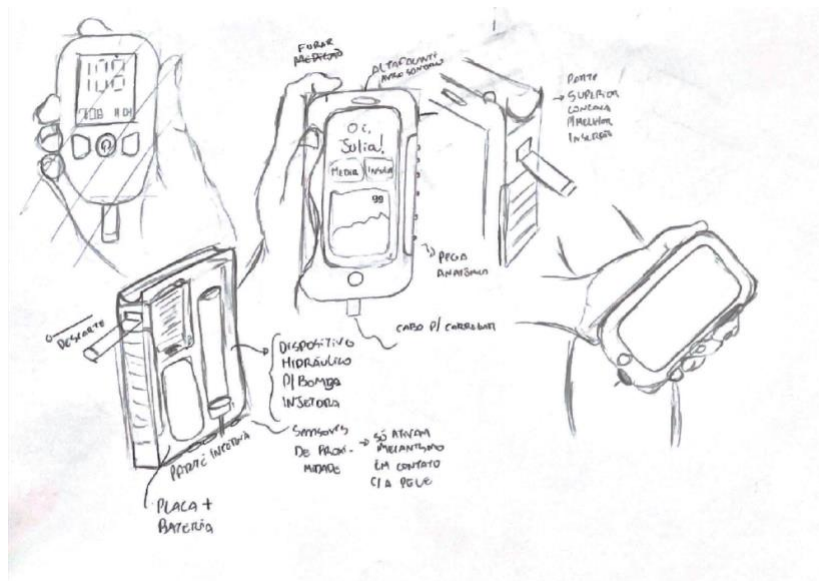 108
FURAR
MEDIÇÃO
ALTOFALANTE
Oi,
Julia!
MEDIR
INSULI
99
PARTE
SUPERIOR
CONCAVA
P/MELHOR
INSERÇÃO
PEGA
ANATÔMICA
CABO P/ CARREGAR
DESCARTE
DISPOSITIVO
HIDRÁULICO
P/ BOMBA
INJETORA
SENSORES
DE PROXI-
MIDADE
SÓ ATIVAM
MECANISMO
EM CONTATO
C/ A PELE
PARTE INTERNA
PLACA +
BATERIA